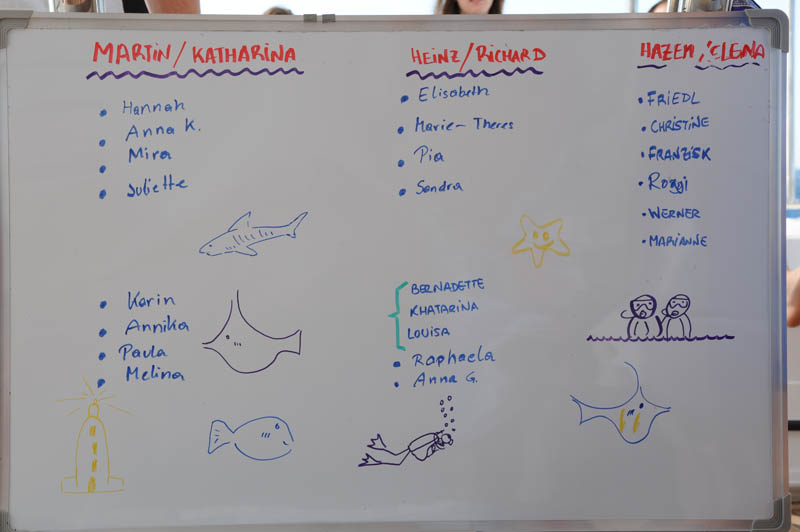 MARTIN/KATHARINA
• Hannah
• Anna K.
• Mira
• Juliette
• Karin
• Annika
• Paula
• Melina
HEINZ/RICHARD
• Elisabeth
• Marie-Theres
• Pia
• Sandra
BERNADETTE
KHATARINA
LOUISA
• Raphaela
• Anna G.
HAZEM, ELENA
• FRIEDL
• CHRISTINE
• FRANZISK
• WERNER
• MARIANNE